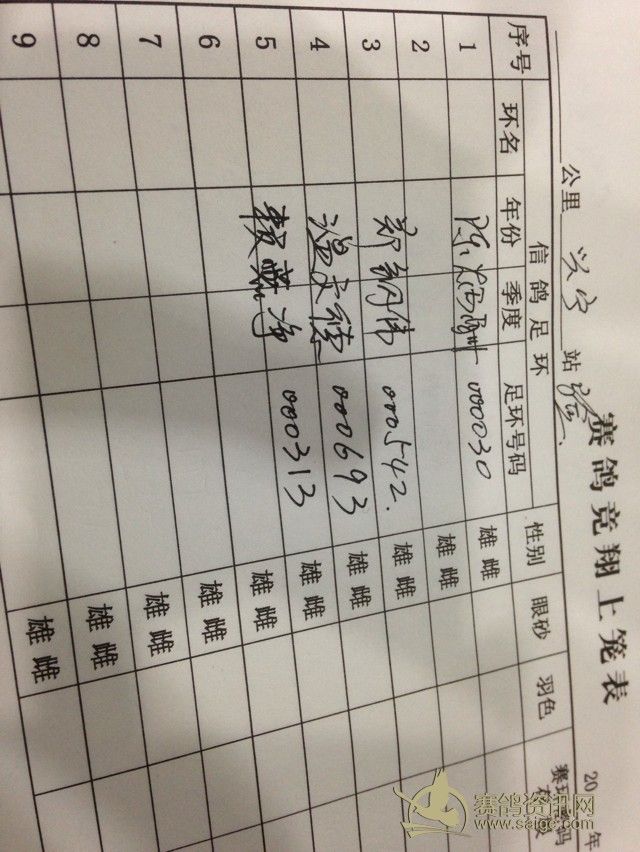 赛鸽竞翔上笼表
公里 兴宁 站 20 年
序号 信鸽足环 性别 眼砂 羽色
环名 年份 季度 足环号码
1 000030 雄 雌
2 雄 雌
3 郑钢伟 000542. 雄 雌
4 000693 雄 雌
5 000313 雄 雌
6 雄 雌
7 雄 雌
8 雄 雌
9 雄 雌
赛鸽资讯网
www.saige.com